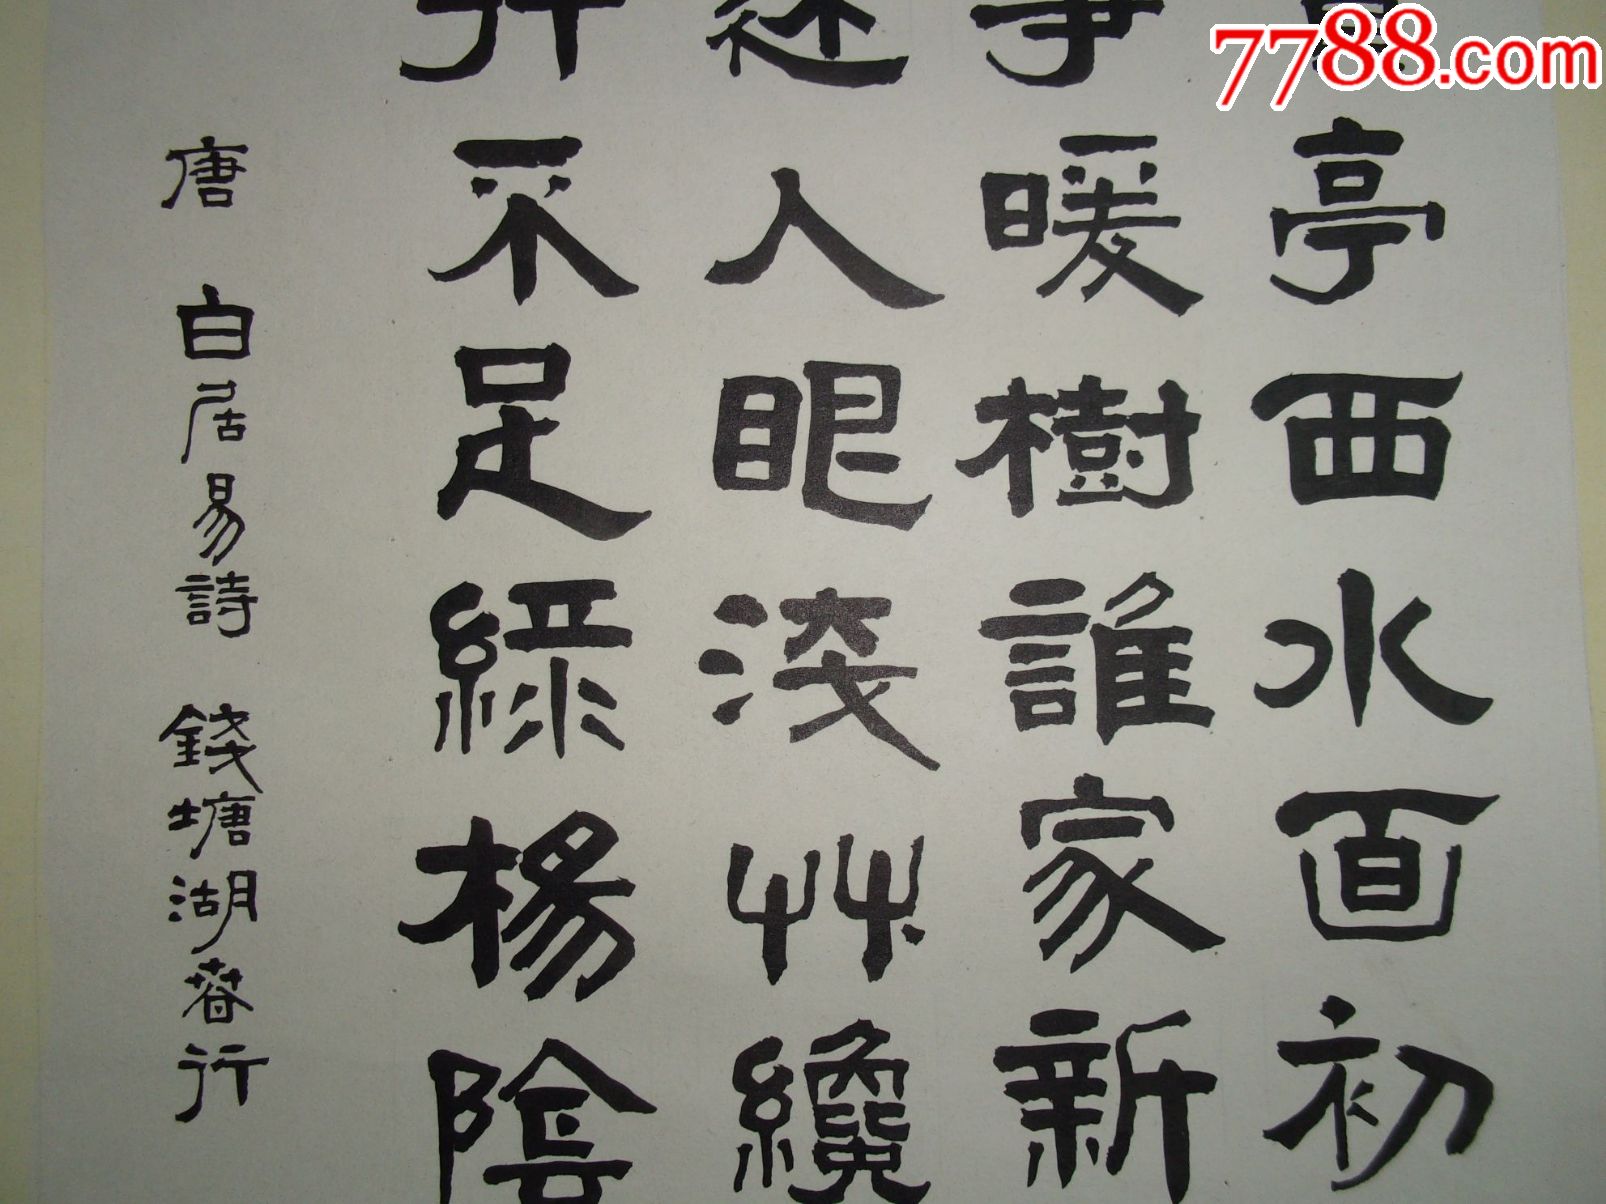 亭西水面初
暖樹誰家新
人眼淺艸纔
不足綠楊陰
唐 白居易詩 錢塘湖春行
7788.com